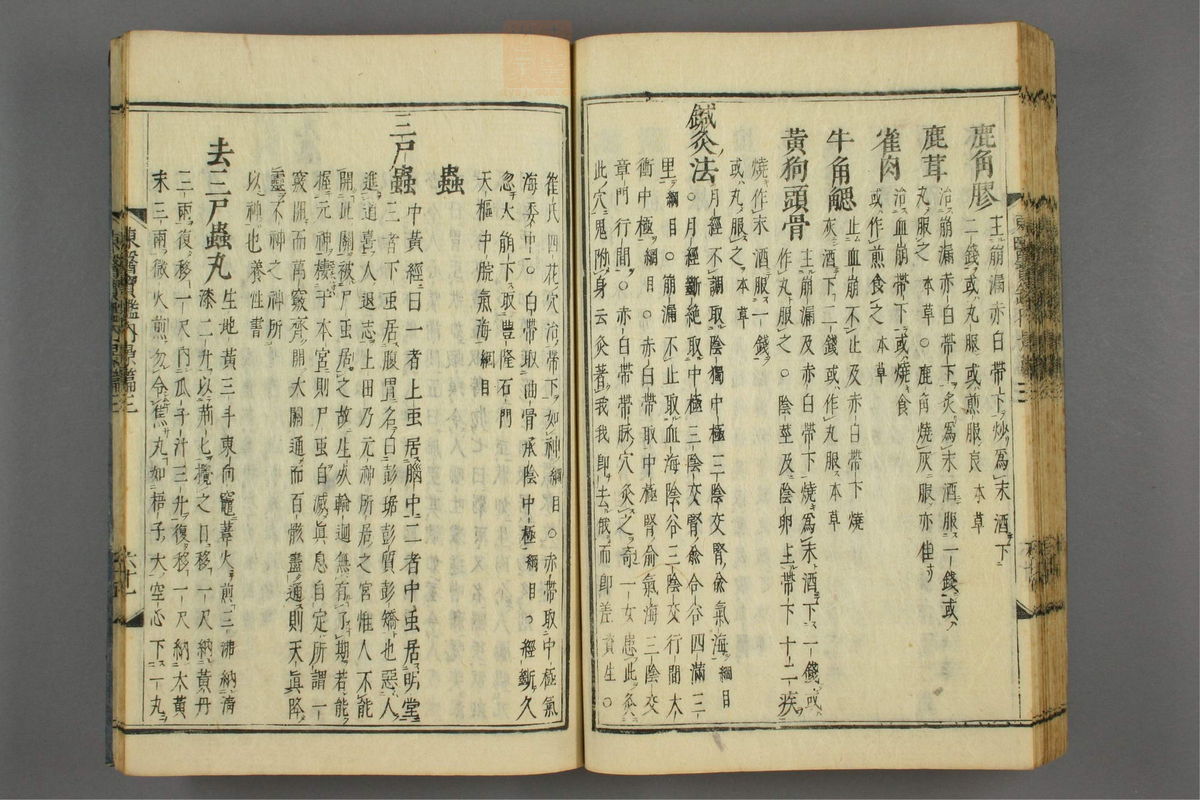 鹿角膠 主崩漏赤白帶下炒爲末酒下
二錢或丸服或煎服良本草
鹿茸 治崩漏赤白帶下炙爲末酒服一錢或
丸服之本草○鹿角燒灰服亦佳
雀肉 治血崩帶下或燒食
或作煎食之本草
牛角䚡 止血崩不止及赤白帶下燒
灰酒下二錢或作丸服本草
黃狗頭骨 主崩漏及赤白帶下燒爲末酒下一錢或
作丸服之○陰莖及陰卵主帶下十二疾
燒作末酒服一錢
或丸服之本草
鍼灸法 月經不調取陰獨中極三陰交腎兪氣海綱目
○月經斷絕取中極三陰交腎兪合谷四滿三
里綱目○崩漏不止取血海陰谷三陰交行間大
衝中極綱目○赤白帶取中極腎兪氣海三陰交
章門行間○赤白帶帶脉穴灸之奇一女患此灸
此穴鬼附身云灸著我我卽去俄而卽差資生○
崔氏四花穴治帶下如神綱目○赤帶取中極氣
海委中○白帶取曲骨承陰中極綱目○經斷久
忽大崩下取豊隆石門
天樞中脘氣海綱目
蟲
三尸蟲 中黃經曰一者上虫居腦中二者中虫居明堂
三者下虫居腹胃名曰彭琚彭質彭矯也惡人
進道喜人退志上田乃元神所居之宮惟人不能
開此關被尸虫居之故生死輪迴無有了期若能
握元神棲于本宮則尸虫自滅眞息自定所謂一
竅開而萬竅齊開大關通而百骸盡通則天眞降
靈不神之神所
以神也養性書
去三尸蟲丸 生地黃三斗東向竈葦火煎三沸納淸
漆二升以荊匕攪之日移一尺納黃丹
三兩復移一尺內瓜子汁三升復移一尺納大黃
末三兩微火煎勿令焦丸如梧子大空心下一丸
東醫寶鑑內景篇三
六十一